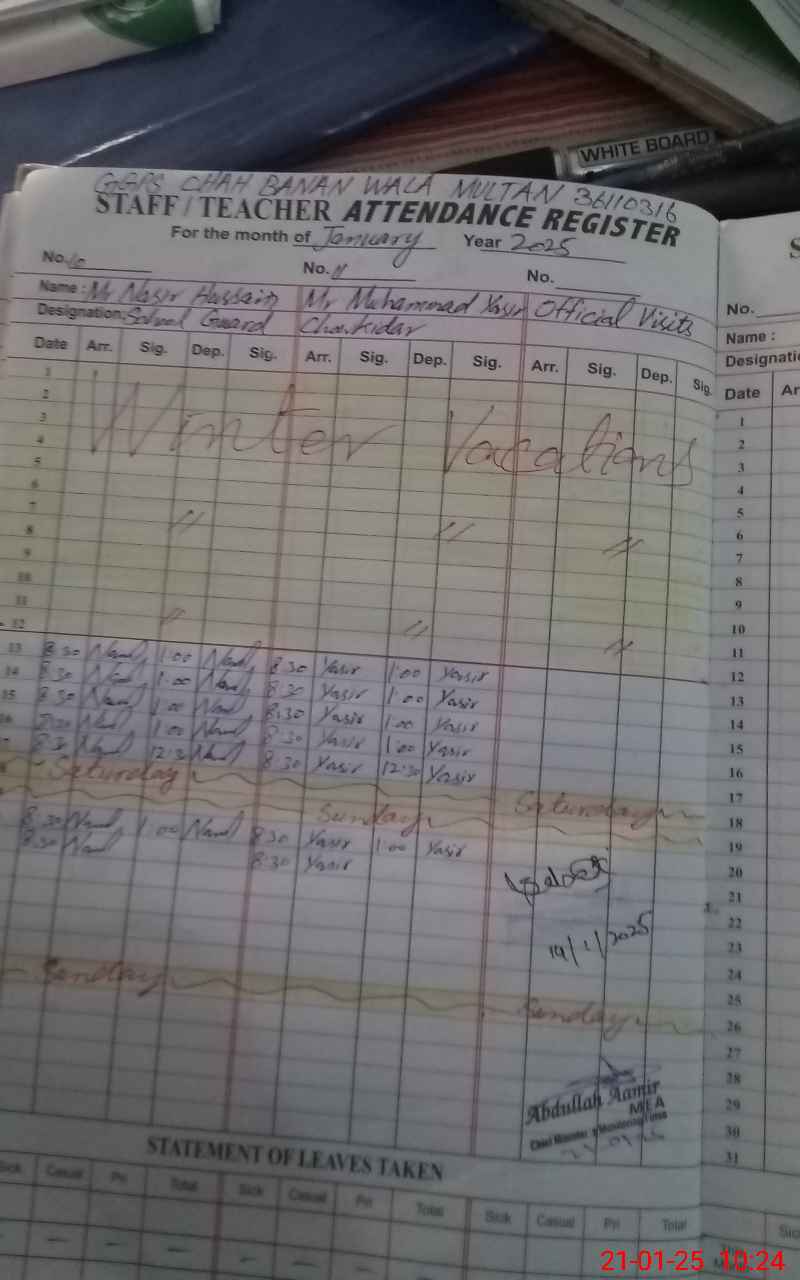 WHITE BOARD
GGPS CHAH BANAN WALA MULTAN 36110316
STAFF / TEACHER ATTENDANCE REGISTER
For the month of January Year 2025
No. 10 No. 11 No.
Name : Mr Nasir Hussain Mr Muhammad Yasir Official Visits
Designation: School Guard Chowkidar
Date Arr. Sig. Dep. Sig. Arr. Sig. Dep. Sig. Arr. Sig. Dep. Sig.
1
2
3
Winter Vacations
4
5
6
7
8 〃 〃 〃
9
10
11
12 〃 〃 〃
13 8:30 1:00 8:30 Yasir 1:00 Yasir
14 8:30 1:00 8:30 Yasir 1:00 Yasir
15 8:30 1:00 8:30 Yasir 1:00 Yasir
16 8:30 1:00 8:30 Yasir 1:00 Yasir
8:30 12:30 8:30 Yasir 12:30 Yasir
Saturday Saturday
Sunday
8:30 1:00 8:30 Yasir 1:00 Yasir
8:30 8:30 Yasir
14/1/2025
Sunday Sunday
Abdullah Aamir
MEA
STATEMENT OF LEAVES TAKEN
Sick Casual Pri Total Sick Casual Pri Total Sick Casual Pri Total
No.
Name :
Designati
Date Ar
1
2
3
4
5
6
7
8
9
10
11
12
13
14
15
16
17
18
19
20
21
22
23
24
25
26
27
28
29
30
31
21-01-25 10:24